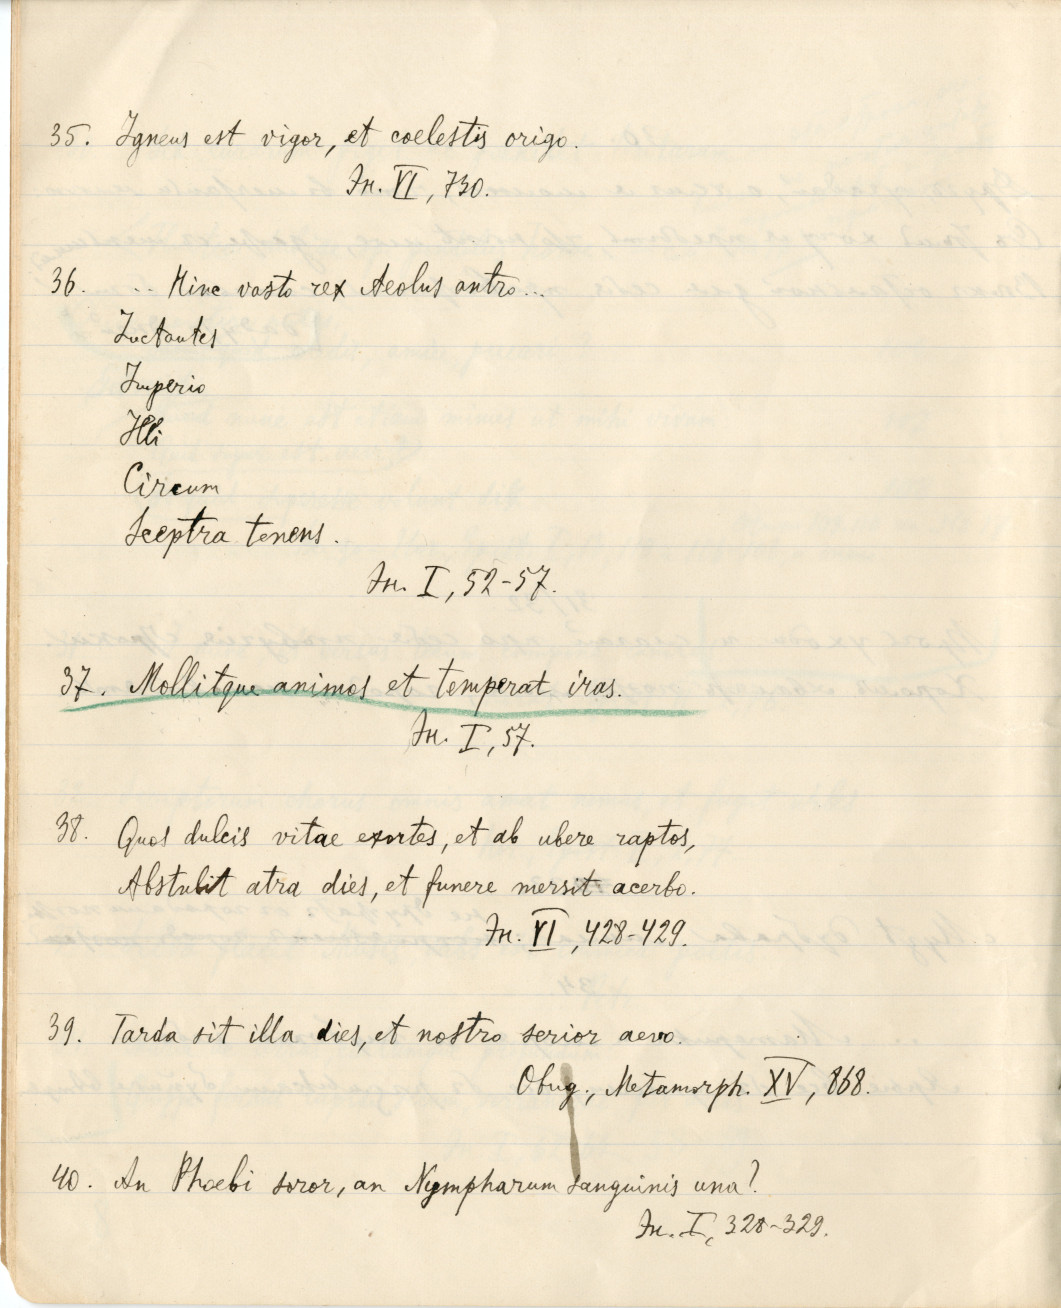 35. Igneus est vigor, et coelestis origo.
Эн. VI, 730.
36. ... Hinc vasto rex Aeolus antro...
Luctantes
Imperio
Illi
Circum
Sceptra tenens.
Эн. I, 52-57.
37. Mollitque animos et temperat iras.
Эн. I, 57.
38. Quos dulcis vitae exortes, et ab ubere raptos,
Abstulit atra dies, et funere mersit acerbo.
Эн. VI, 428-429.
39. Tarda sit illa dies, et nostro serior aevo.
Овид., Metamorph. XV, 868.
40. An Phoebi soror, an Nympharum sanguinis una?
Эн. I, 328-329.